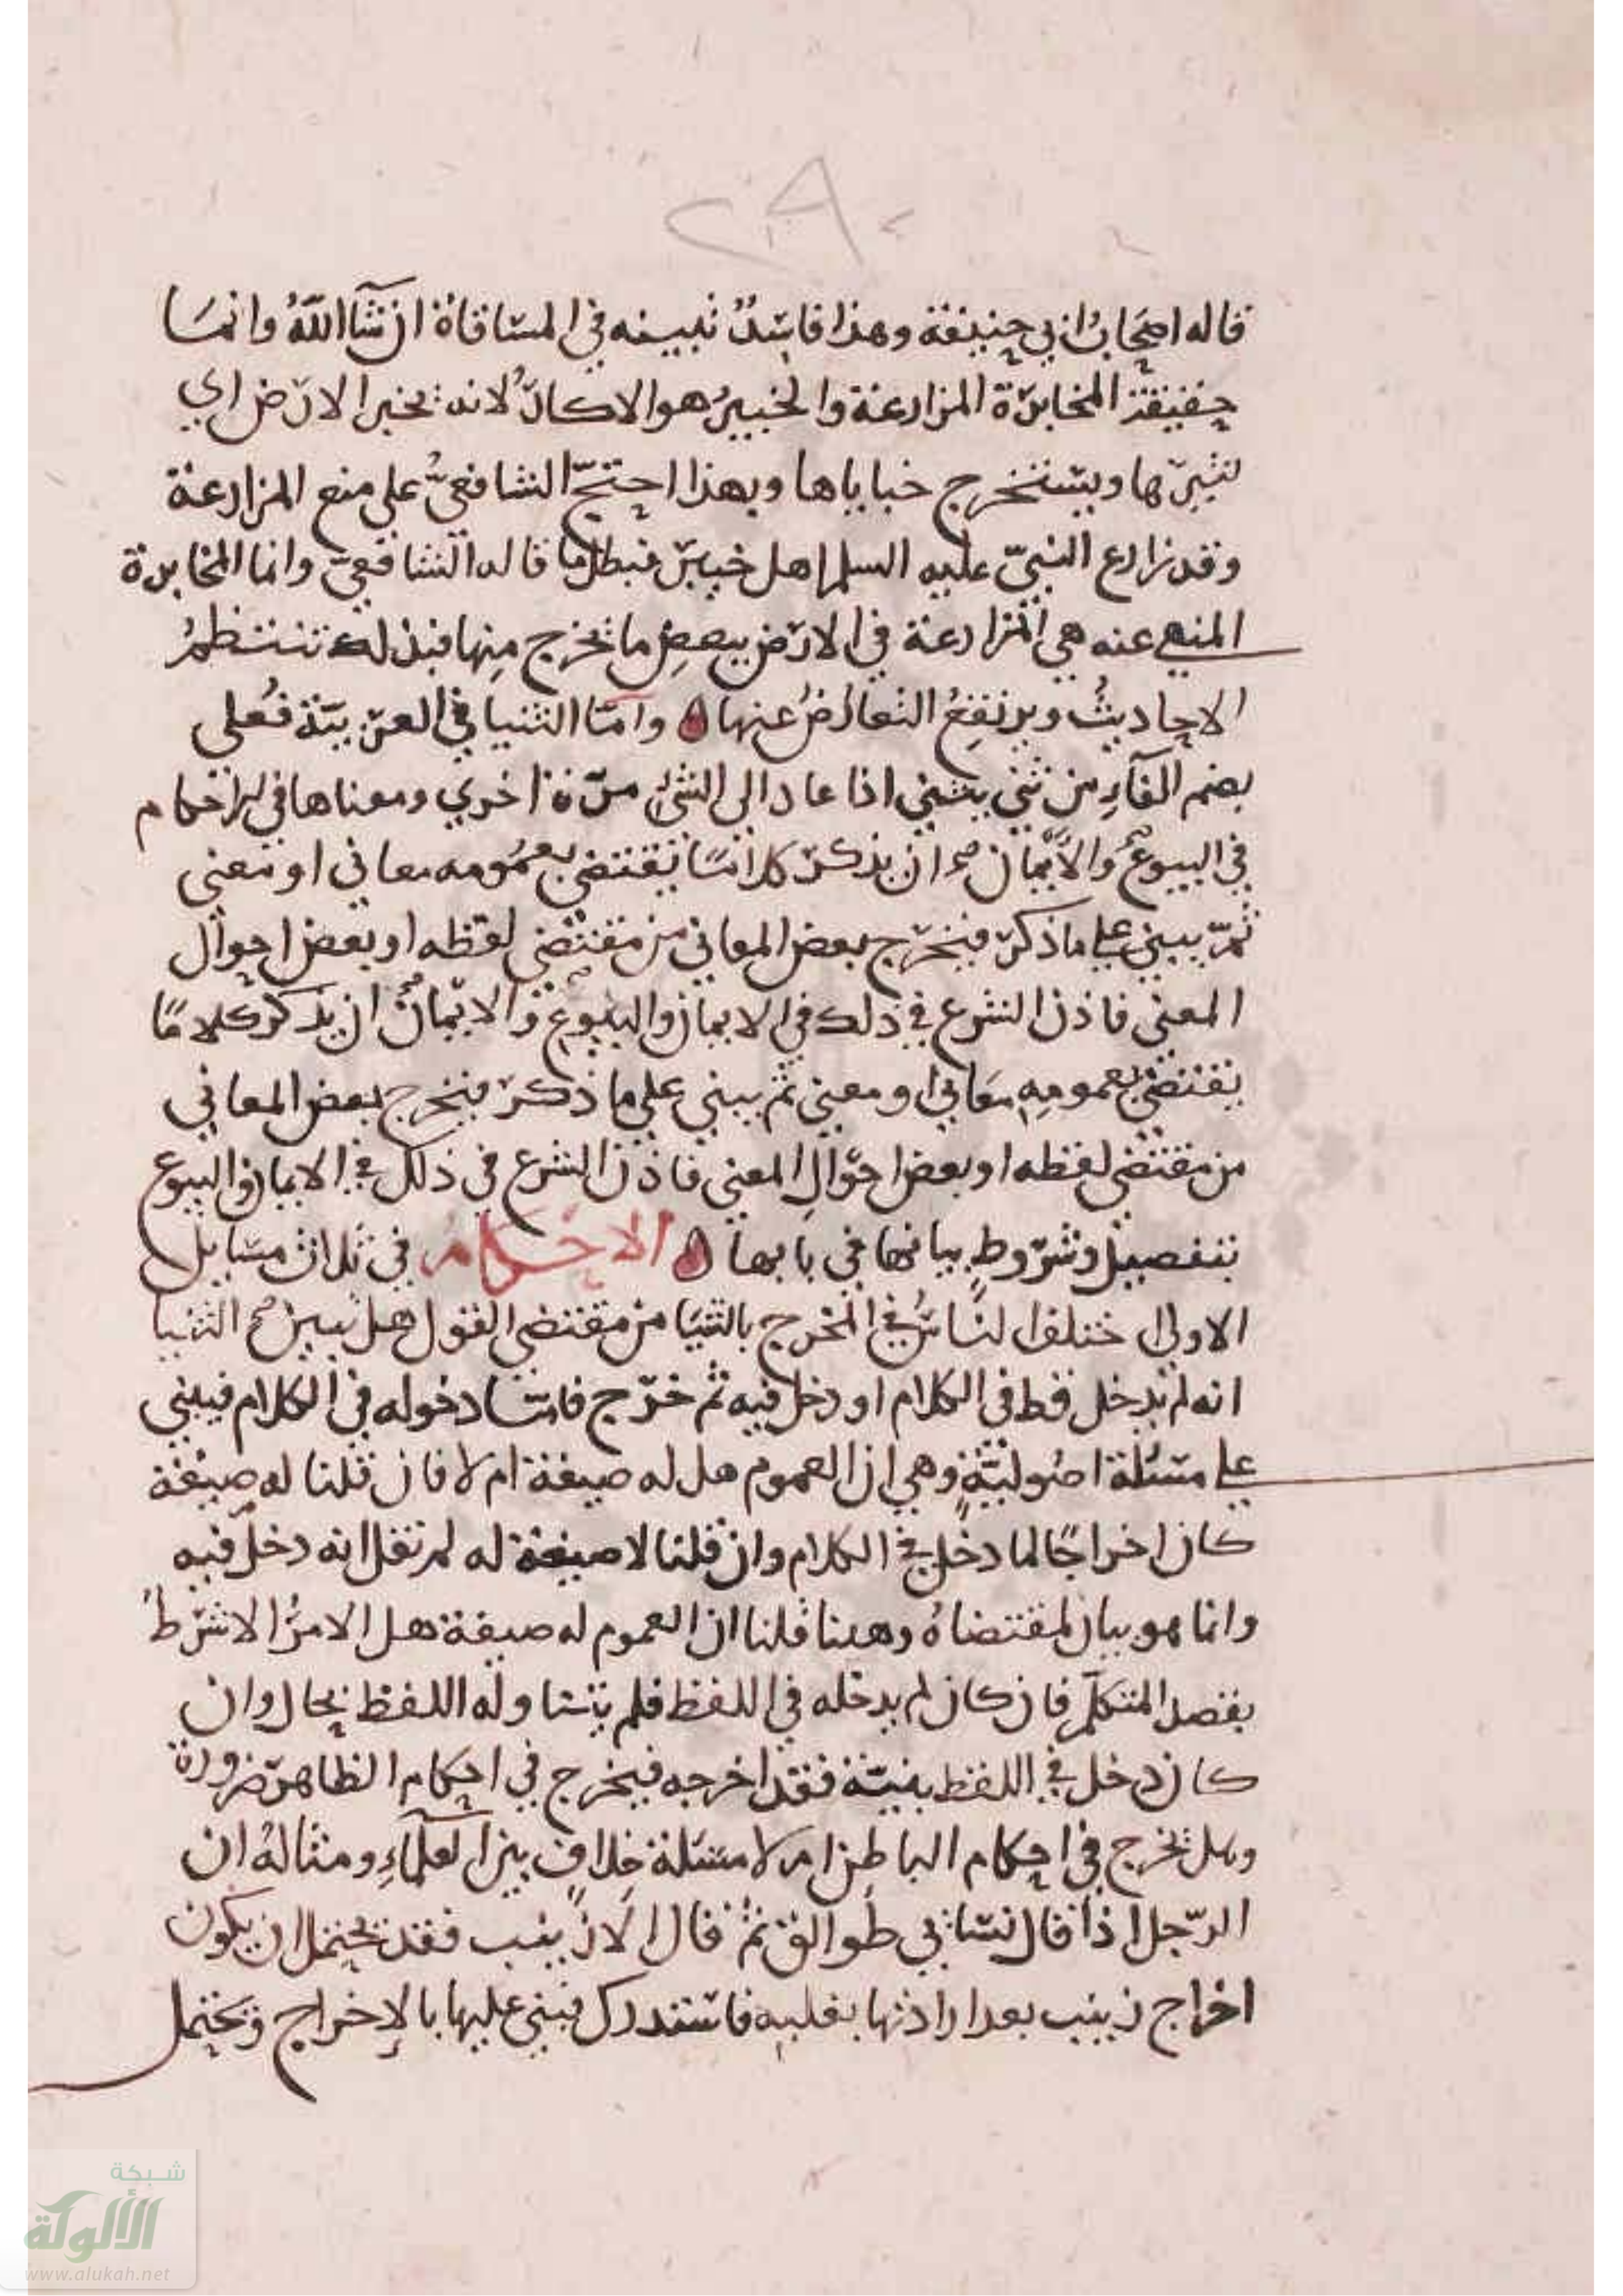 ٢٩٠
قاله اصحاب ابي حنيفة وهذا فاسدٌ نبينه في المساقاة ان شآ اللهُ وانمسا
حقيقة المخابرة المزارعة والخبيرُ هو الاكارُ لانه يخبر الارض اي
يثيرها ويستخرج خباياها وبهذا احتجّ الشافعيُّ على منع المزارعة
وقد زارع النبيّ عليه السلم اهل خيبر فبطل ما قاله الشافعي وانما المخابرة
المنهي عنه هي المزارعة في الارض ببعضِ ما يخرج مِنها فبذلك تنتظمُ
الاحاديثُ ويرتفِعُ التعارُضُ عنها وامّا الثنيا في العربيّة فُعلى
بضم الفآءِ من ثنى يثني اذا عاد الى الشئ مرّة اخري ومعناها في الاحكام
في البيوع والأَيْمان هو ان يذكر كلامًا يقتضي بعمُومه معاني او معنى
ثمّ يبني على ما ذكر فيخرج بعض المعاني من مقتضى لفظه او بعض احوال
المعنى فاذن الشرع في ذلك في الايمان والبيُوع والايمانُ ان يذكر كلامًا
يقتضي بعمومِهِ معاني او معنى ثم يبني على ما ذكر فيخرج بعض المعاني
من مقتضى لفظه او بعض احوالِ المعنى فاذن الشرع في ذلك في الايمان والبيوع
بتفصيل وشروطٍ بيانها في بابها الاحكام في ثلاث مسايل
الاولى اختلف الناسُ في المخرج بالثنيَا من مقتضى القول هل تبين الثنيا
انه لم يدخل قط في الكلام او دخل فيه ثم خرج فامّا دخوله في الكلام فيبني
على مسئلة اصُوليّةٍ وهي ان العموم هل له صيغة ام لا فان قلنا له صيغة
كان اخراجًا لما دخل في الكلام وان قلنا لا صيغة له لم نقل انه دخل فيه
وانما هو بيان لمقتضاهُ وهبنا قلنا ان العموم له صيغة هل الامرُ الا شرط
بقصد المتكلّم فان كان لم يدخله في اللفظ فلم يتناوله اللفظ بحال وان
كان دخل في اللفظ بنيته فقد اخرجه فيخرج في احكام الظاهر ضرورة
وهل يخرج في احكام الباطن ام لا مسئلة خِلافٍ بين العلمآءِ ومثالهُ ان
الرّجل اذا قال نسائي طوالق ثم قال الا زينب فقد يحتمل ان يكون
اخراج زينب بعد ارادتها بقلبه فاستدرك فبنى عليها بالإخراج ويحتمل
شبكة
الألوكة
www.alukah.net